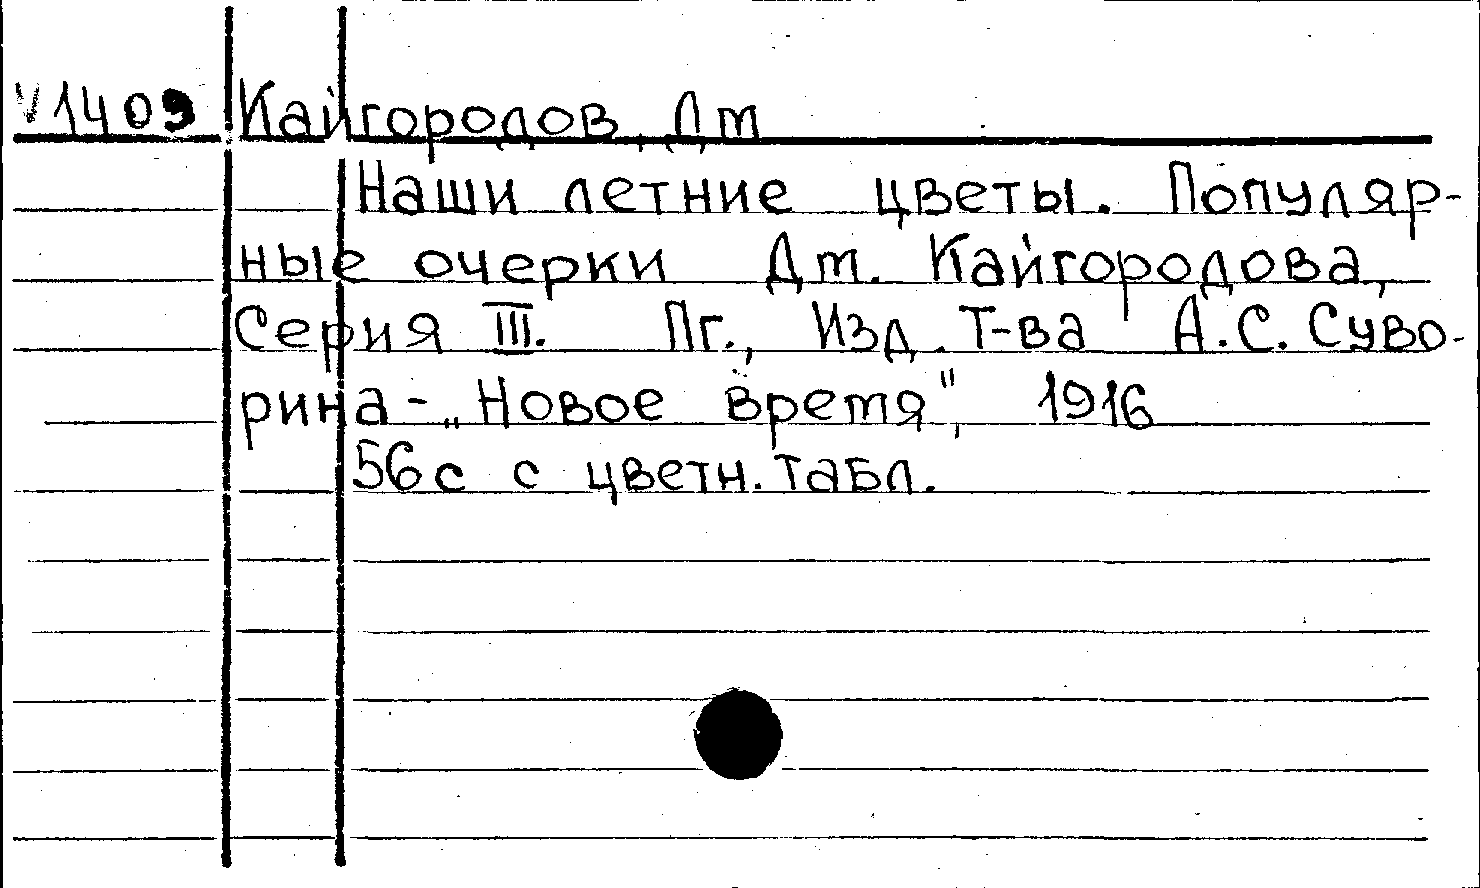 V1409 Кайгородов, Дм
Наши летние цветы. Популяр-
ные очерки Дм. Кайгородова,
Серия III. Пг., Изд. Т-ва А.С. Суво-
рина - „Новое время", 1916
56 с с цветн. табл.